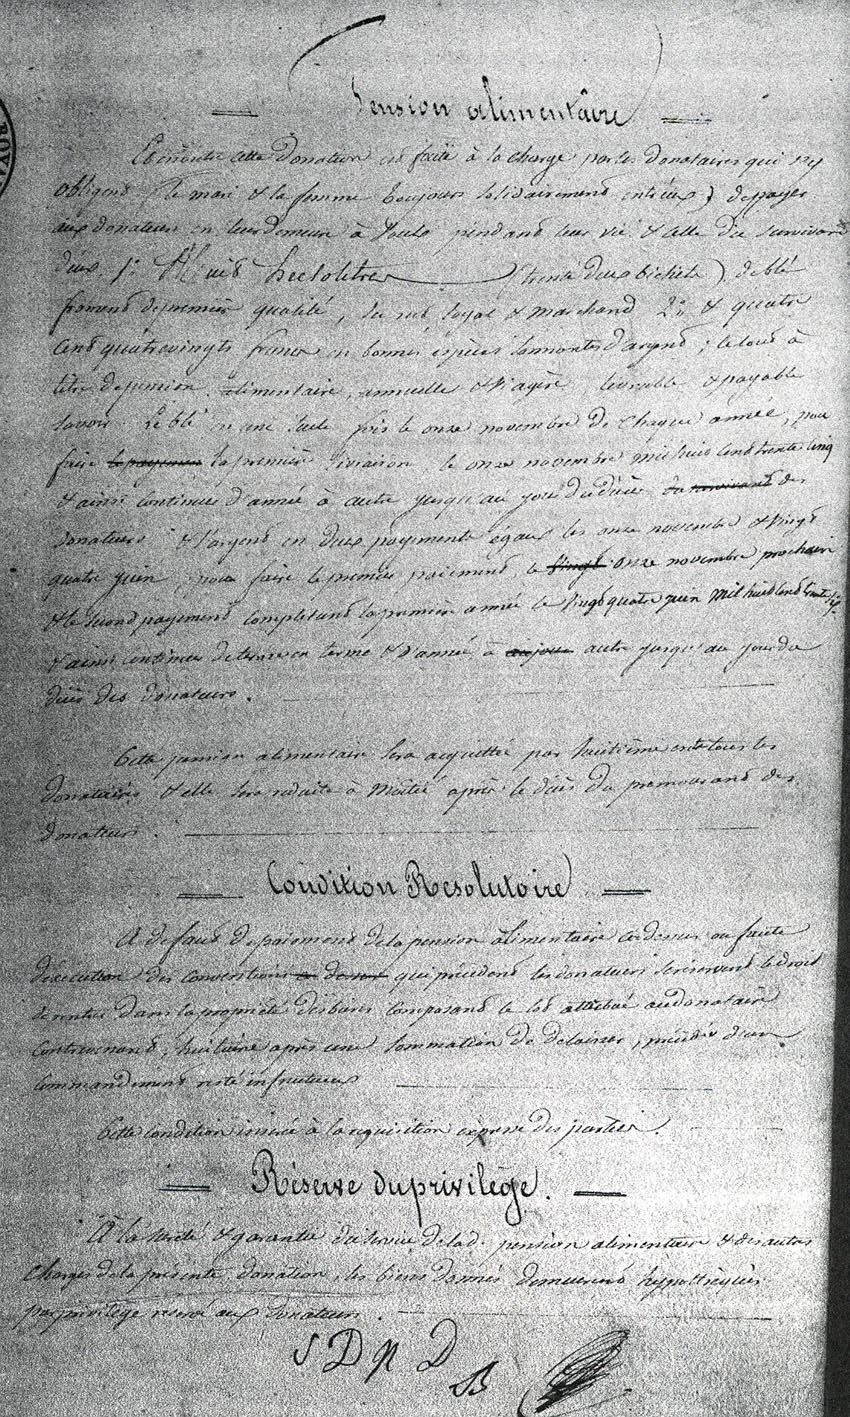 Pension alimentaire
En outre cette Donation est faite à la charge par les donataires qui s'y
obligent (le mari & la femme toujours solidairement entr'eux) de payer
aux donateurs en leur demeure à pendant leur vie & celle du survivant
d'eux. 1º huit hectolitres (trente deux bichets) de blé
froment de première qualité, sec net loyal & marchand 2º & quatre
cent quatrevingts francs en bonnes espèces sonnantes d'argent; le tout à
titre de pension alimentaire, annuelle & viagère, livrable & payable
savoir: Le blé en une seule fois le onze novembre de chaque année, pour
faire le payement la première livraison, le onze novembre mil huit cent trente cinq
& ainsi continuer d'année à autre jusqu'au jour du décès du survivant des
donateurs & l'argent en deux payements égaux les onze novembre & vingt
quatre juin, pour faire le premier paiement le vingt onze novembre prochain
& le second payement complétant la première année le vingt quatre juin mil huit cent trente
& ainsi continuer de terme en terme & d'année à au jour autre jusqu'au jour du
décès des donateurs.
Cette pension alimentaire sera acquittée par huitième entre tous les
donataires & elle sera réduite à moitié après le décès du premourant des
donateurs.
Condition Résolutoire
A défaut de paiement de la pension alimentaire ci dessus ou faute
d'exécution des conventions qui précèdent les donateurs se réservent le droit
de rentrer dans la propriété des biens composant le lot attribué au donataire
contrevenant, huitaine après une sommation de délaisser, précédée d'un
commandement resté infructueux
Cette condition insérée à la réquisition expresse des parties.
Réserve du privilège.
A la sûreté & garantie du service de lad. pension alimentaire & des autres
charges de la présente donation, les biens donnés demeurent hypothéqués
par privilège réservé aux donateurs.
S D N D
B